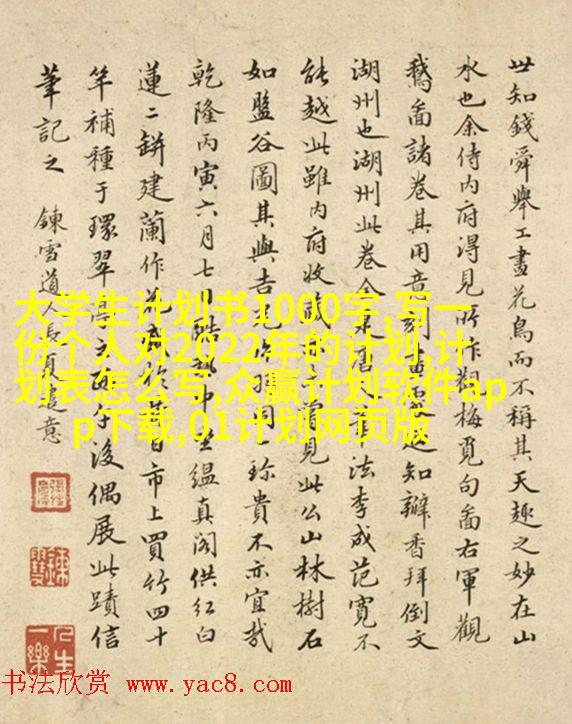 世知錢舜舉工畫花鳥而不稱其天趣之妙在山
水也余侍内府得見所作觀梅覓句畵右軍觀
鵝畵諸卷其用意刻知瓣香拜倒文
湖州也湖州此卷法李成范寬不
能越此雖内府收見此公山林樹石
如盤谷圖其與珍貴不亦宜哉
乾隆丙寅六月七中坐縕真閣供紅白
蓮二缾建蘭作市上買竹四十
竿補種于環翠後偶展此蹟信
筆記之 鍊雪道人長意
大学生计划书1000字,写一
份个人对2022年的计划,计
划表怎么写,众赢计划软件ap
p下载,01计划网页版
人生一樂
书法欣赏 www.yac8.com